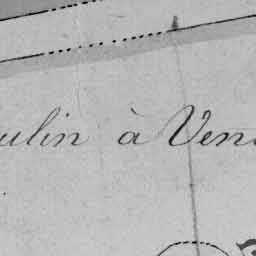 ulin à Ven